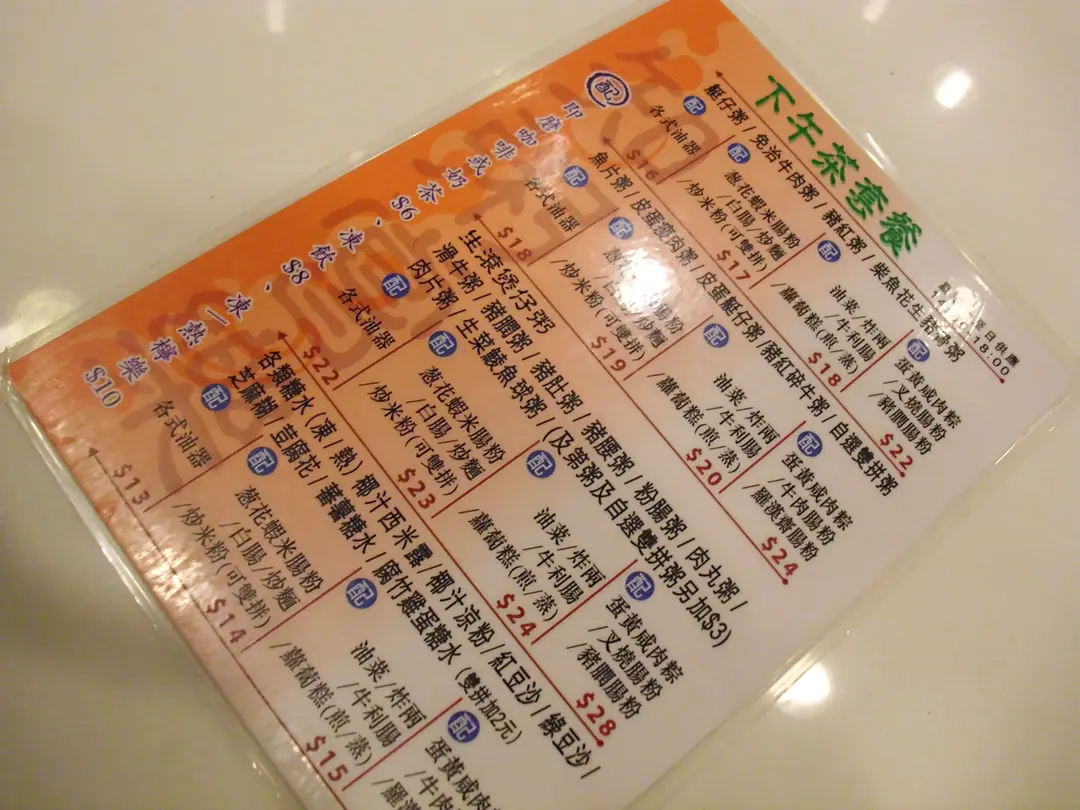 下午茶套餐
18:00
艇仔粥 / 免治牛肉粥 / 豬紅粥 / 柴魚花生
配 各式油器
$16
配 葱花蝦米腸粉
/白腸/炒麵
/炒米粉(可雙拼)
$17
配 油菜/炸兩
/牛利腸
/蘿蔔糕(煎/蒸)
$18
配 蛋黃咸肉粽
/叉燒腸粉
/豬膶腸粉
$22
魚片粥 / 皮蛋瘦肉粥 / 皮蛋艇仔粥 / 豬紅碎牛粥 / 自選雙拼粥
配 各式油器
$18
配 葱
腸粉
炒麵
/炒米粉(可雙拼)
$19
配 油菜/炸兩
/牛利腸
/蘿蔔糕(煎/蒸)
$20
配 蛋黃咸肉粽
/牛肉腸粉
/羅漢齋腸粉
$24
生滾煲仔粥
滑牛粥 / 豬膶粥 / 豬肚粥 / 豬腰粥 / 粉腸粥 / 肉丸粥 /
肉片粥 / 生菜鯪魚球粥 / (及第粥及自選雙拼粥另加$3)
配 各式油器
$22
配 葱花蝦米腸粉
/白腸/炒麵
/炒米粉(可雙拼)
$23
配 油菜/炸兩
/牛利腸
/蘿蔔糕(煎/蒸)
$24
配 蛋黃咸肉粽
/叉燒腸粉
/豬膶腸粉
$28
各類糖水(凍 / 熱) 椰汁西米露 / 椰汁涼粉 / 紅豆沙 / 綠豆沙 /
芝麻糊 / 豆腐花 / 蕃薯糖水 / 腐竹雞蛋糖水 (雙拼加2元)
配 各式油器
$13
配 葱花蝦米腸粉
/白腸/炒麵
/炒米粉(可雙拼)
$14
配 油菜/炸兩
/牛利腸
/蘿蔔糕(煎/蒸)
$15
配 蛋黃咸肉
/牛肉
/羅漢
配 即磨咖啡或奶茶 $6、凍飲 $8、凍一熱檸樂 $10